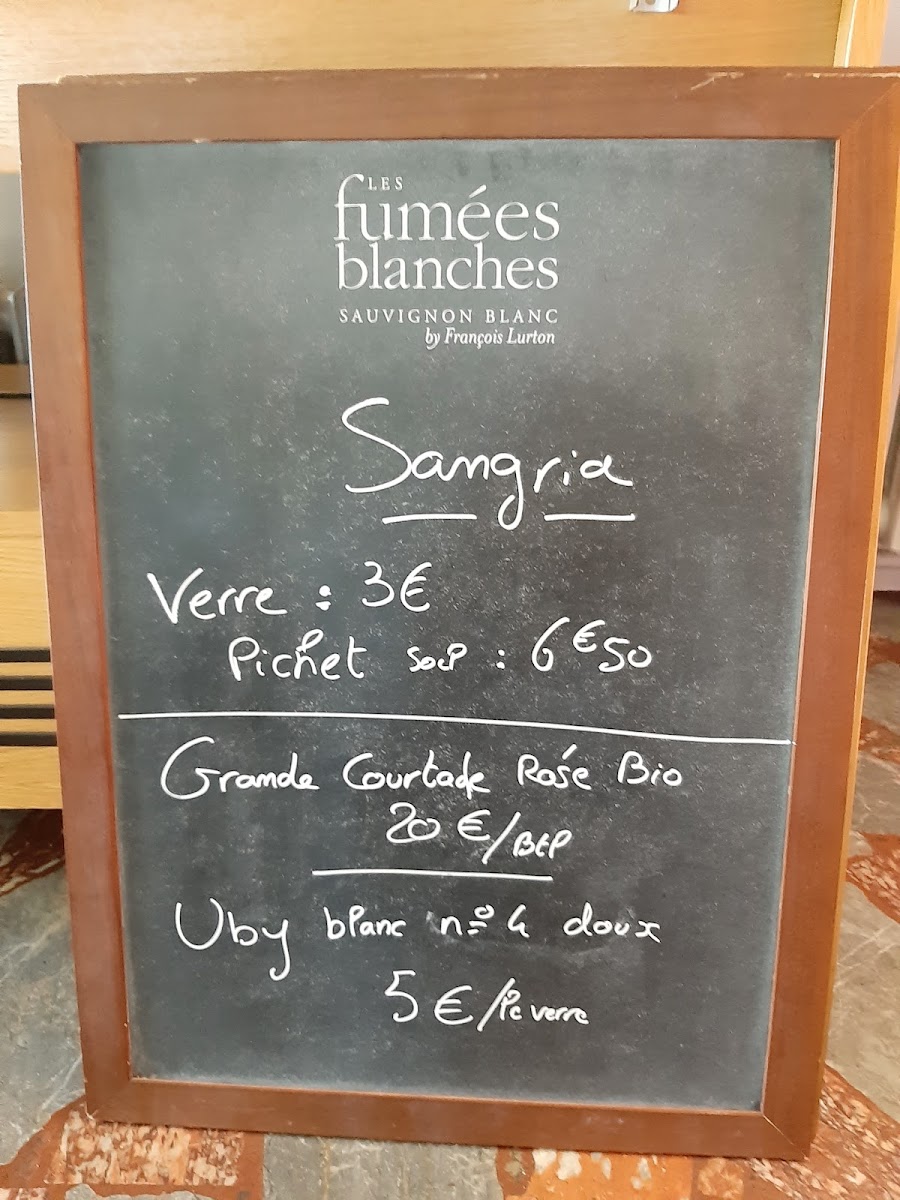 LES
fumées
blanches
SAUVIGNON BLANC
by François Lurton
Sangria
Verre : 3€
Pichet 50cl : 6€50
Grande Courtade Rosé Bio
20 €/BtL
Uby blanc n° 4 doux
5 €/le verre